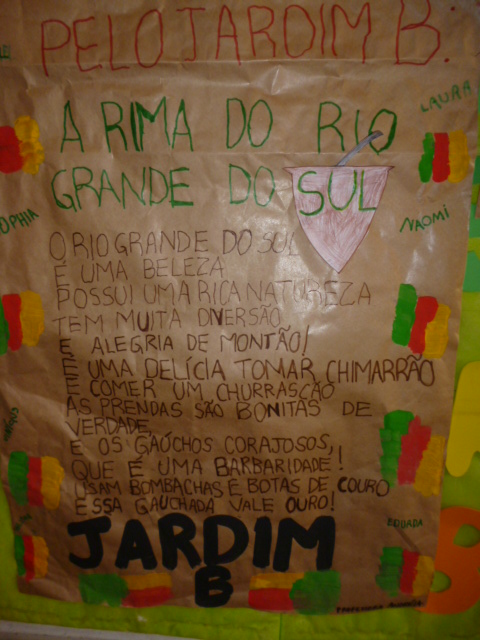 PELO JARDIM B:
A RIMA DO RIO
GRANDE DO SUL
LAURA
SOPHIA
NAOMI
O RIO GRANDE DO SUL
E UMA BELEZA
POSSUI UMA RICA NATUREZA
TEM MUITA DIVERSÃO
E ALEGRIA DE MONTÃO!
É UMA DELÍCIA TOMAR CHIMARRÃO
E COMER UM CHURRASCÃO
AS PRENDAS SÃO BONITAS DE
VERDADE,
E OS GAÚCHOS CORAJOSOS,
QUE É UMA BARBARIDADE!
USAM BOMBACHAS E BOTAS DE COURO
ESSA GAUCHADA VALE OURO!
JARDIM
B